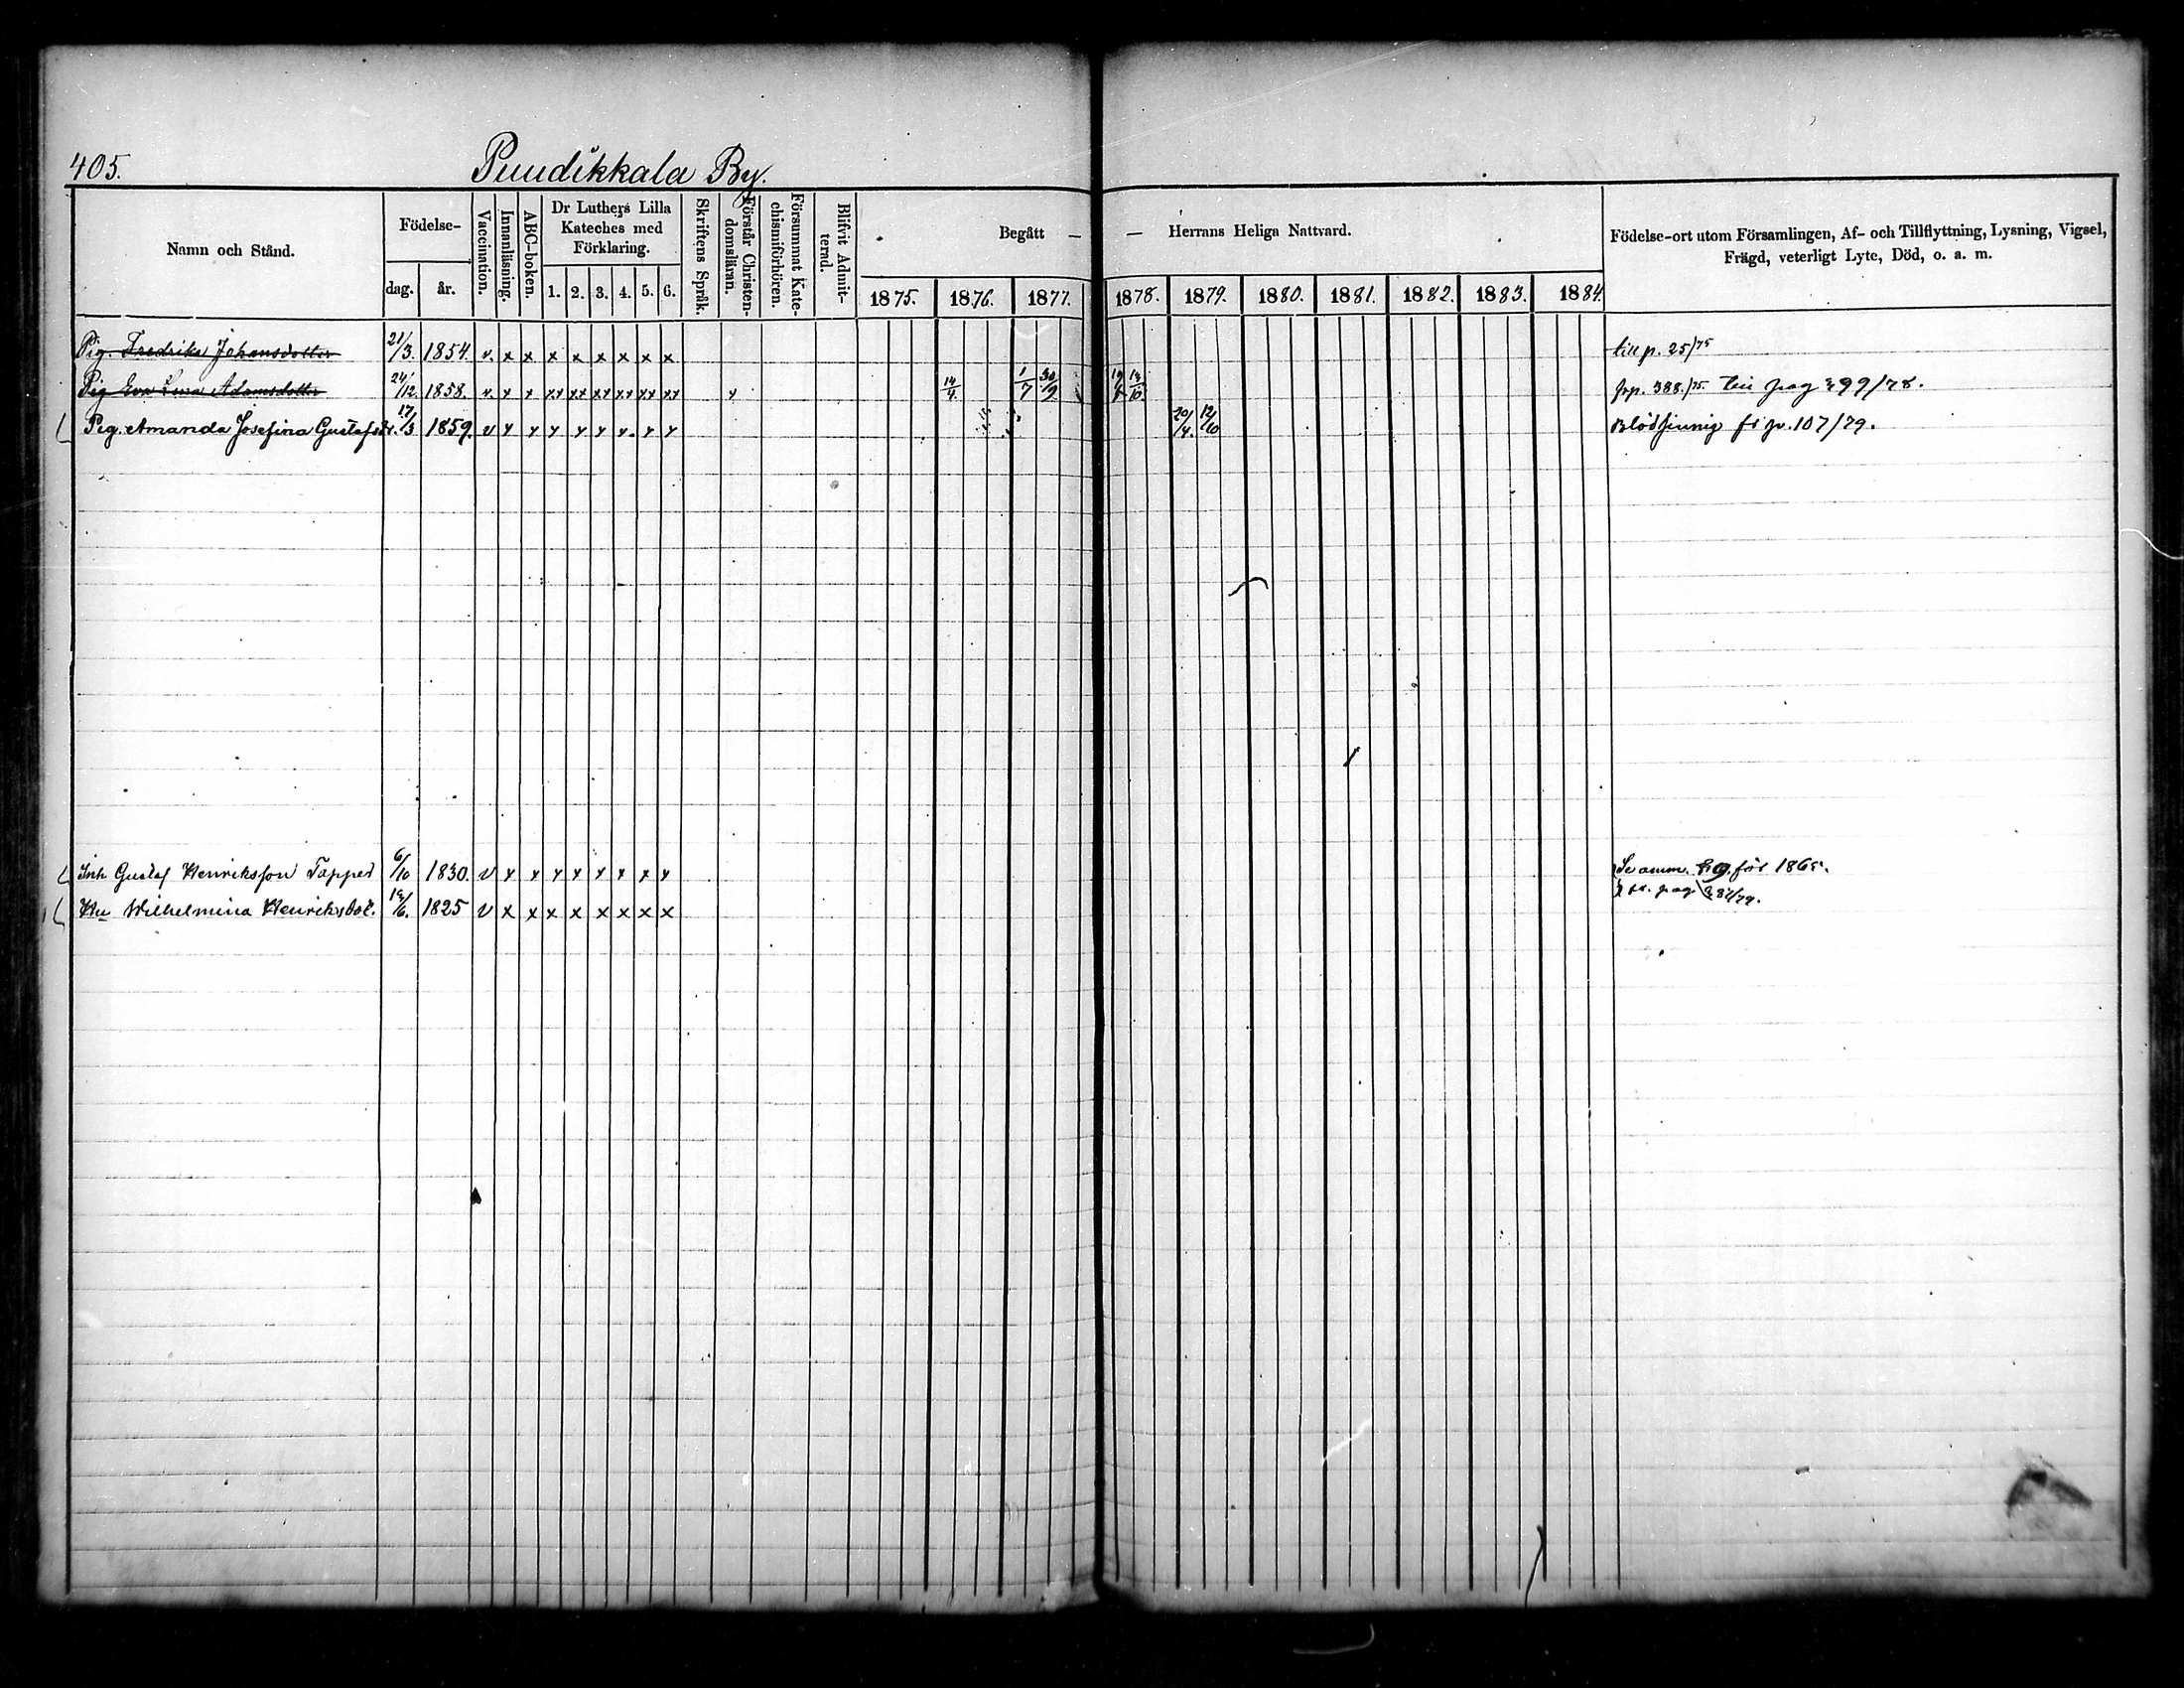 405.
Puudikkala By.
Namn och Stånd.
Födelse-
dag. år.
Vaccination.
Innanläsning.
ABC-boken.
Dr Luthers Lilla
Kateches med
Förklaring.
1. 2. 3. 4. 5. 6.
Skriftens Språk.
Förstår Christen-
domsläran.
Försummat Kate-
chismiförhören.
Blifvit Admit-
terad.
Begått —
— Herrans Heliga Nattvard.
1875. 1876. 1877. 1878. 1879. 1880. 1881. 1882. 1883. 1884.
Födelse-ort utom Församlingen, Af- och Tillflyttning, Lysning, Vigsel,
Frägd, veterligt Lyte, Död, o. a. m.
Pig. Fredrika Johansdotter 21/3. 1854. v. x x x x x x x x till p. 25/75
Pig Eva Lena Adamsdotter 24/12. 1858. v. x x xx xx xx xx xx xx x 14/4 1/7 30/9 frp. 388./75 till pag 399/78.
Pig. Amanda Josefina Gustafsdr. 17/3 1859. v x x x x x x x x 20/4. 12/10 Blödsinnig fr p. 107/79.
Inh Gustaf Henriksson Tapper 6/10 1830. v x x x x x x x x Se anm. för 1865.
Hu Wilhelmina Henriksdot. 1825 v x x x x x x x x fr. pag 381/79.